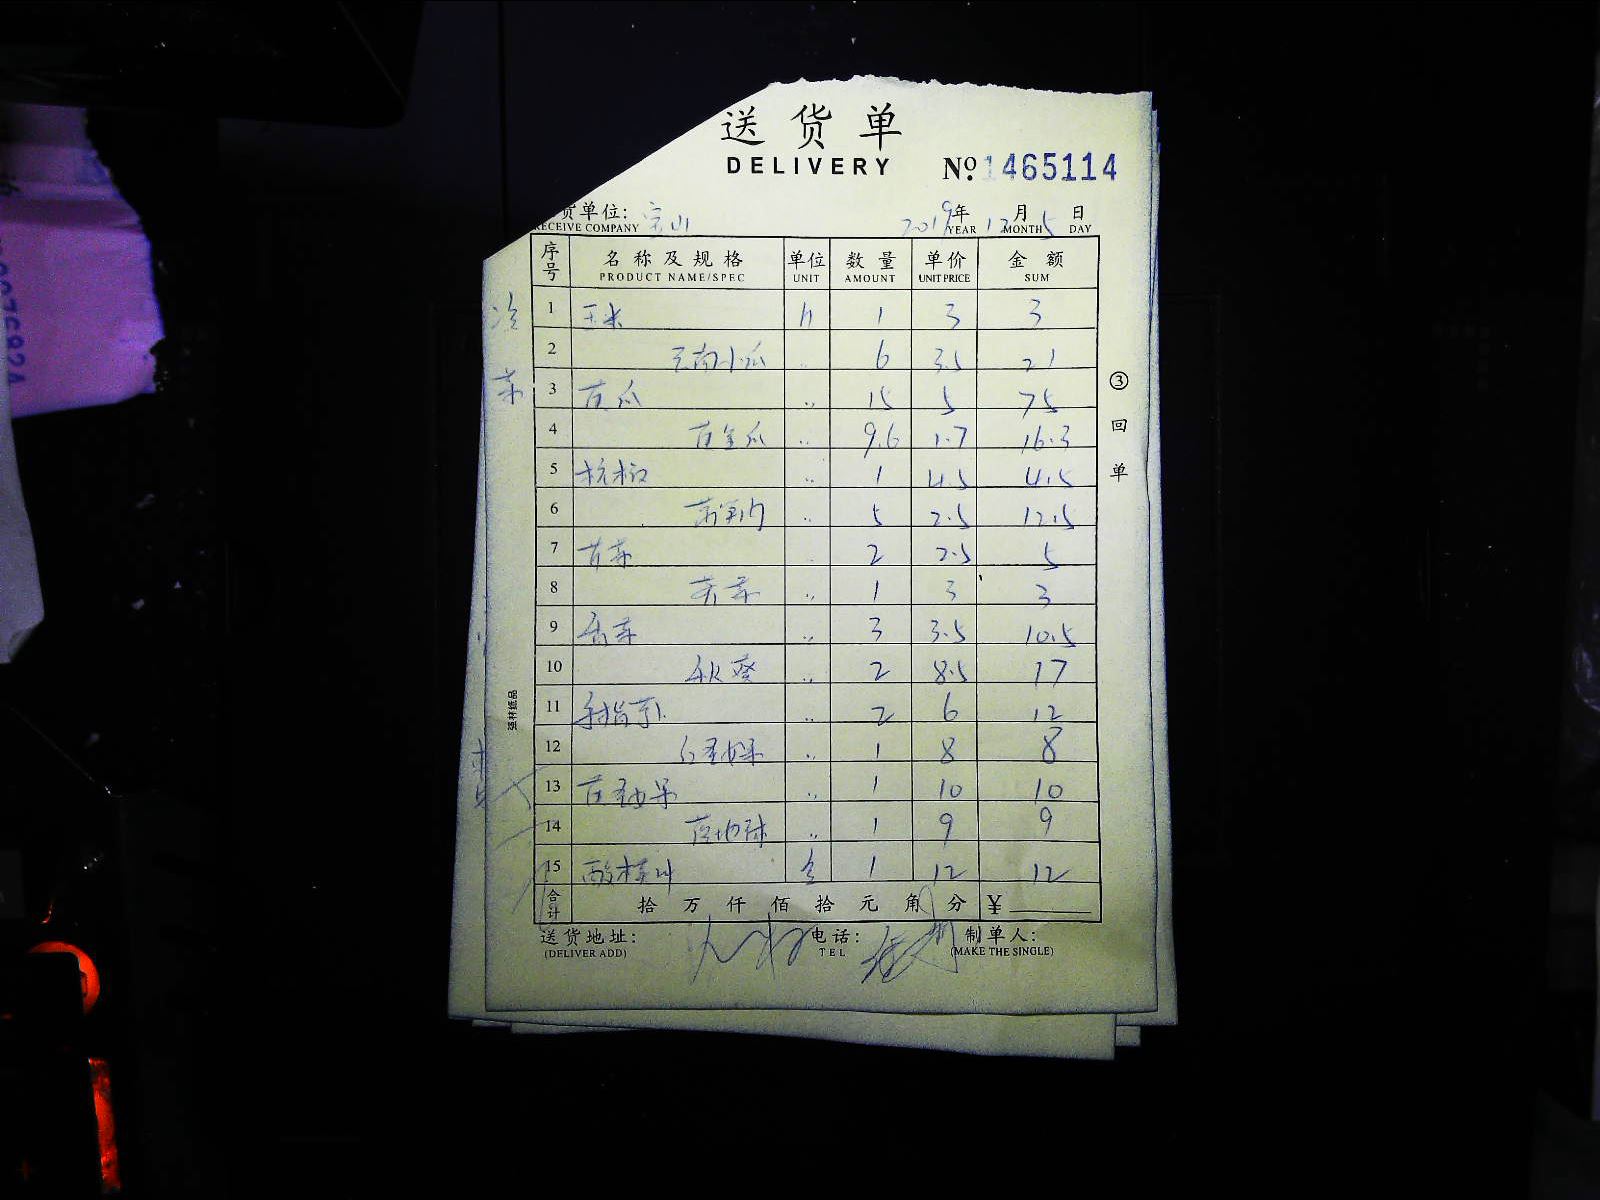 送货单
DELIVERY
No 1465114
货单位: 宝山
RECEIVE COMPANY
2019年 12月 5日
YEAR MONTH DAY
序号 名称及规格 单位 数量 单价 金额
PRODUCT NAME/SPEC UNIT AMOUNT UNIT PRICE SUM
1 玉米 1 3 3
2 云南小瓜 .. 6 3.5 21
3 .. 15 5 75
4 .. 9.6 1.7 16.3
5 杭椒 .. 1 4.5 4.5
6 .. 5 2.5 12.5
7 2 2.5 5
8 .. 1 3 3
9 香菜 .. 3 3.5 10.5
10 秋葵 .. 2 8.5 17
11 手指 .. 2 6 12
12 .. 1 8 8
13 .. 1 10 10
14 .. 1 9 9
15 1 12 12
合计 拾 万 仟 佰 拾 元 角 分 ¥
送货地址: 电话: 制单人:
(DELIVER ADD) TEL (MAKE THE SINGLE)
③回单
强林纸品